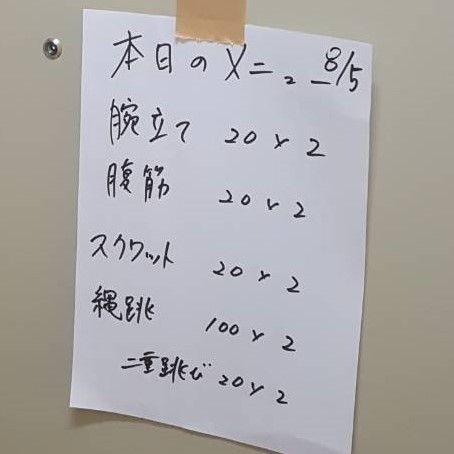 本日のメニュー 8/5
腕立て 20×2
腹筋 20×2
スクワット 20×2
縄跳 100×2
二重跳び 20×2